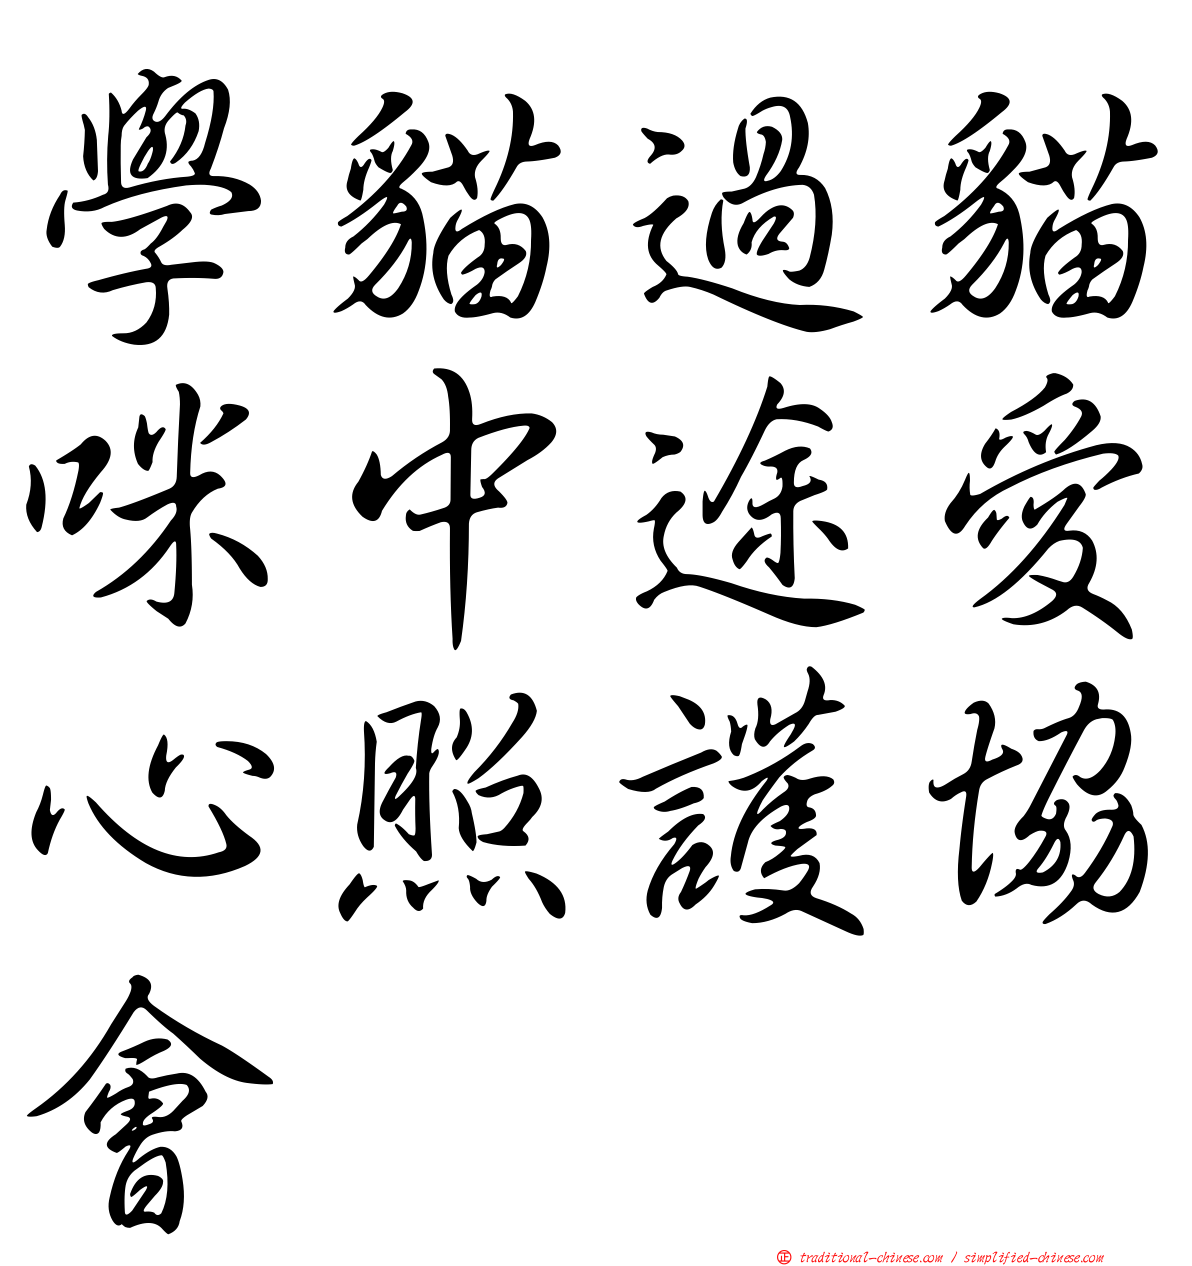 學貓過貓
咪中途愛
心照護協
會
正 traditional-chinese.com / simplified-chinese.com